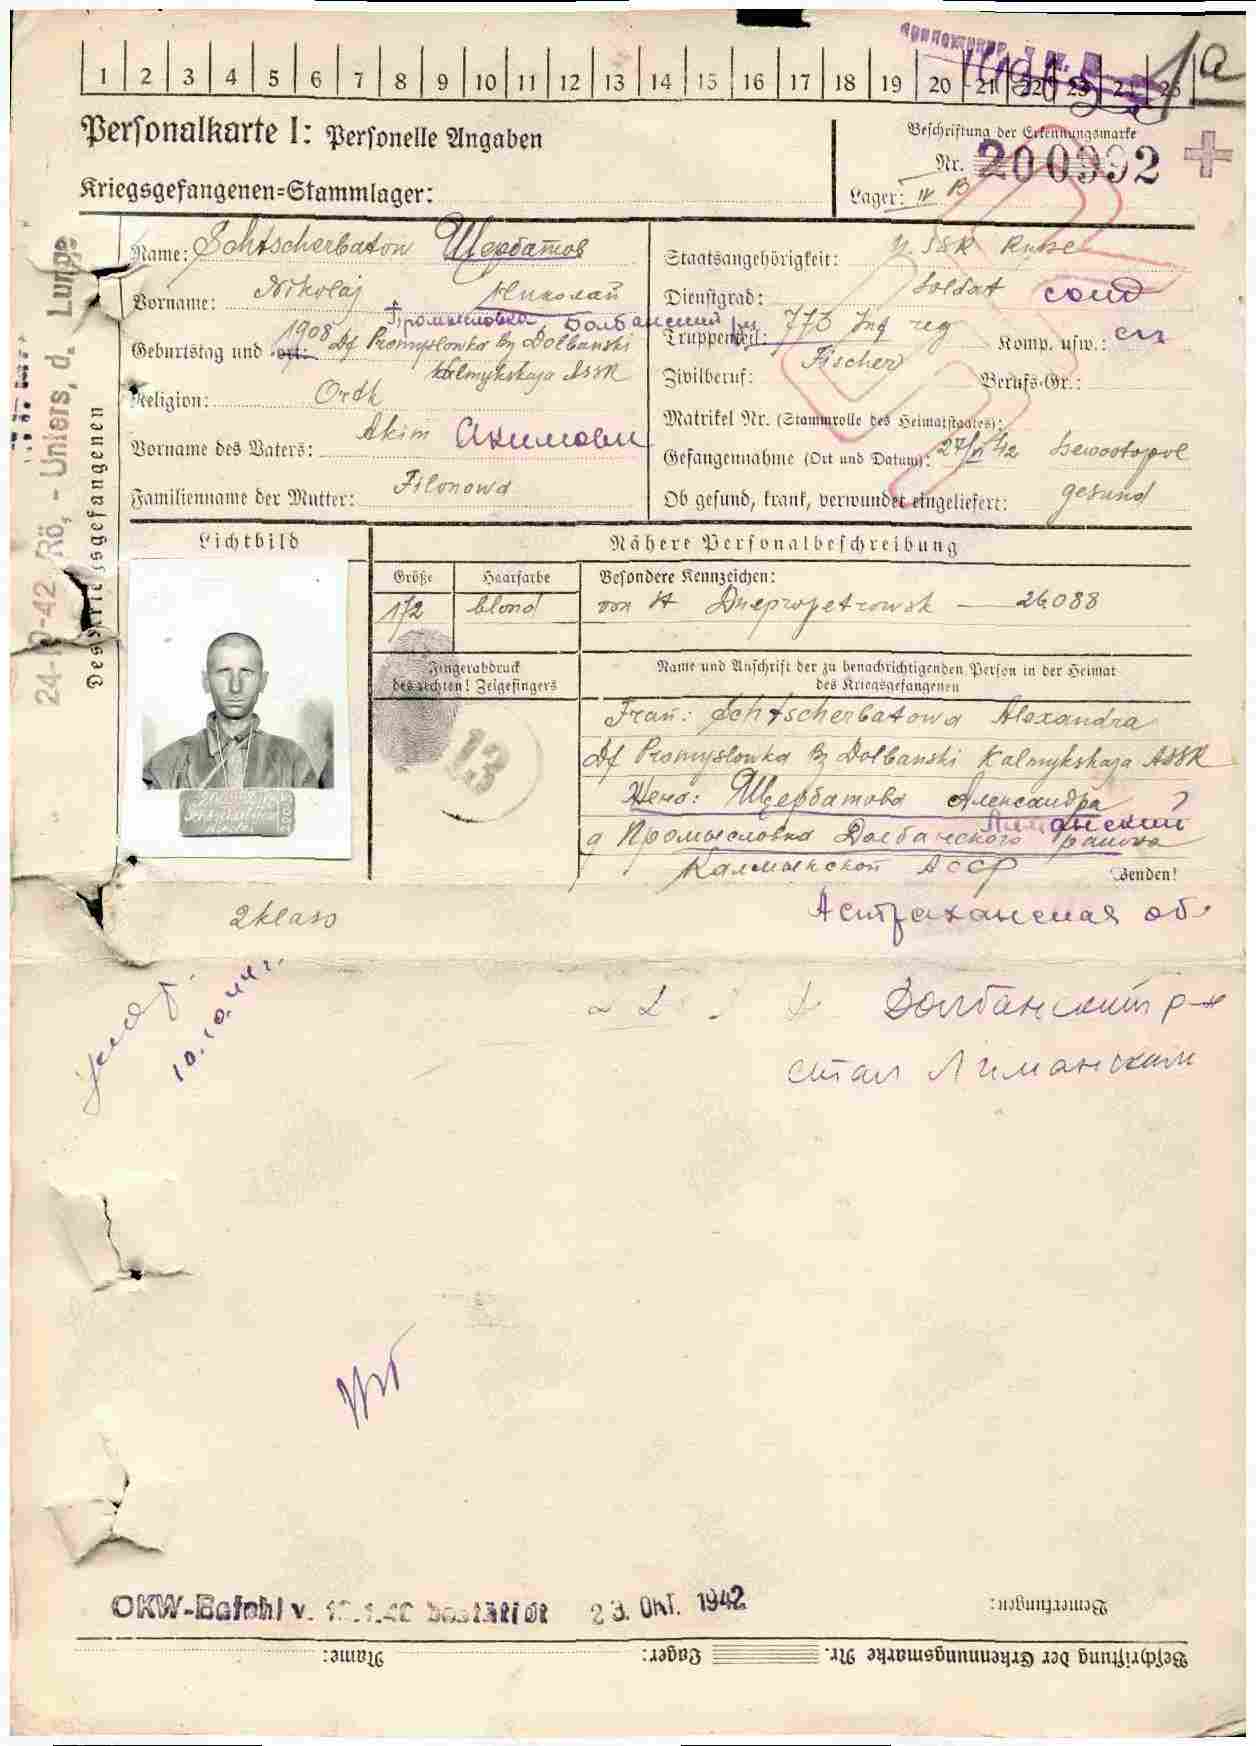 1 2 3 4 5 6 7 8 9 10 11 12 13 14 15 16 17 18 19 20 21 22 23 24 25
1a
Personalkarte I: Personelle Angaben
Kriegsgefangenen=Stammlager:
Beschriftung der Erkennungsmarke
Nr. 200992
Lager: IV B
Des Kriegsgefangenen
24-10-42 Rö, - Unters, d. Lunge
Name: Schtscherbatow Щербатов
Vorname: Nikolaj Николай
Промысловка, Долбанский
Geburtstag und -ort: 1908 Df Promyslowka Bz Dolbanski
Kalmykskaja ASSR
Religion: Orth
Vorname des Vaters: Akim Акимови
Familienname der Mutter: Filonowa
Staatsangehörigkeit: U.SSR Russe
Dienstgrad: Soldat солд
Truppenteil: 773 Inf reg Komp. usw.: сп
Zivilberuf: Fischer Berufs-Gr.:
Matrikel Nr. (Stammrolle des Heimatstaates):
Gefangennahme (Ort und Datum): 27/VI 42 Sewostopol
Ob gesund, krank, verwundet eingeliefert: gesund
Lichtbild
Nähere Personalbeschreibung
Größe Haarfarbe Besondere Kennzeichen:
172 blond von St Dnepropetrowsk — 26088
Fingerabdruck
des rechten! Zeigefingers
13
Name und Anschrift der zu benachrichtigenden Person in der Heimat
des Kriegsgefangenen
Frau: Schtscherbatowa Alexandra
Df Promyslowka Bz Dolbanski Kalmykskaja ASSR
Жена: Щербатова Александра ?
Лиманский
д Промысловка Долбанского района
Калмыкской АССР
senden!
Астраханская об.
2 klass
10.10.44 г.
Долбанский р-н
стал Лиманским
OKW-Befehl v. bestätigt 23. Okt. 1942
Bemerkungen:
Beschriftung der Erkennungsmarke Nr. Lager: Name: